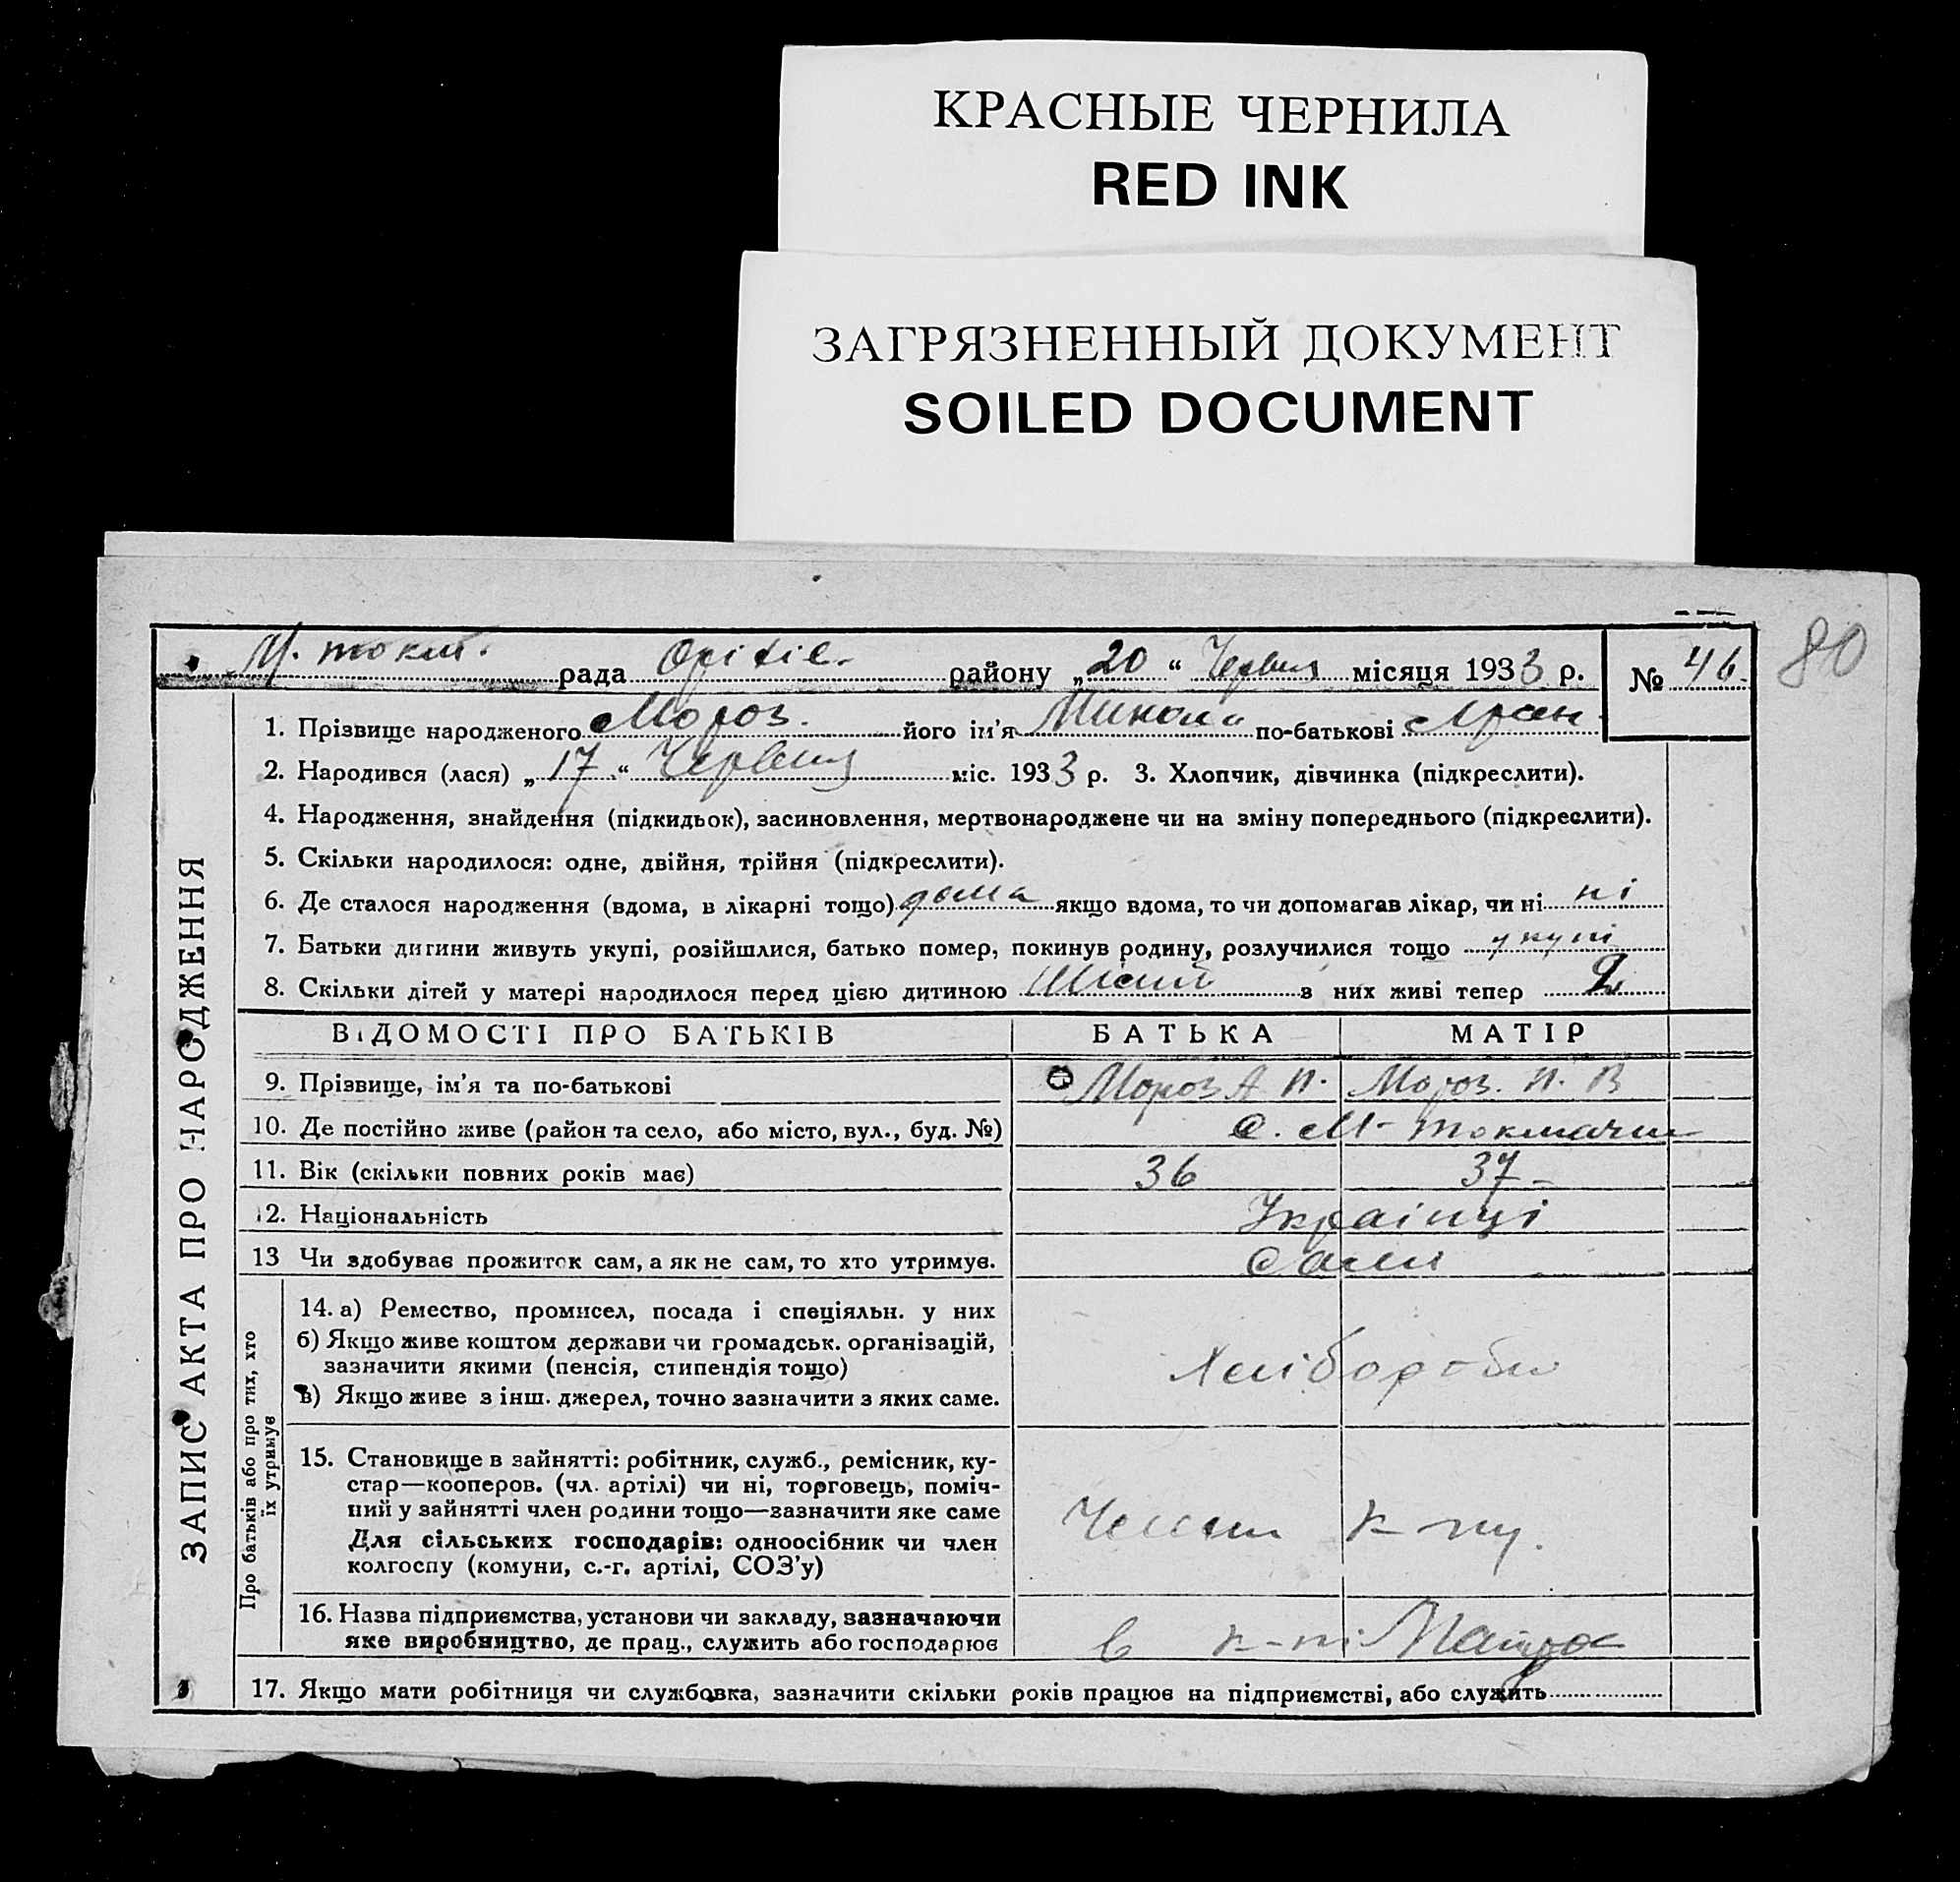 КРАСНЫЕ ЧЕРНИЛА
RED INK
ЗАГРЯЗНЕННЫЙ ДОКУМЕНТ
SOILED DOCUMENT
80
М. токм. рада Оріхів. району „20“ Червня місяця 1933 р. № 46
ЗАПИС АКТА ПРО НАРОДЖЕННЯ
1. Прізвище народженого Мороз. його ім'я Микола по-батькові
2. Народився (лася) „17“ Червня міс. 1933 р. 3. Хлопчик, дівчинка (підкреслити).
4. Народження, знайдення (підкидьок), засиновлення, мертвонароджене чи на зміну попереднього (підкреслити).
5. Скільки народилося: одне, двійня, трійня (підкреслити).
6. Де сталося народження (вдома, в лікарні тощо) дома якщо вдома, то чи допомагав лікар, чи ні ні
7. Батьки дитини живуть укупі, розійшлися, батько помер, покинув родину, розлучилися тощо укупі
8. Скільки дітей у матері народилося перед цією дитиною в них живі тепер 2
ВІДОМОСТІ ПРО БАТЬКІВ БАТЬКА МАТІР
9. Прізвище, ім'я та по-батькові Мороз А П. Мороз. П. В
10. Де постійно живе (район та село, або місто, вул., буд. №) с. М-токмачка
11. Вік (скільки повних років має) 36 37
12. Національність Українці
13 Чи здобуває прожиток сам, а як не сам, то хто утримує. Сами
Про батьків або про тих, хто їх утримує
14. а) Ремество, промисел, посада і спеціяльн. у них
б) Якщо живе коштом держави чи громадськ. організацій,
зазначити якими (пенсія, стипендія тощо) Хлібороби
в) Якщо живе з інш. джерел, точно зазначити з яких саме.
15. Становище в зайнятті: робітник, служб., ремісник, ку-
стар—кооперов. (чл. артілі) чи ні, торговець, поміч-
ний у зайнятті член родини тощо—зазначити яке саме
Для сільських господарів: одноосібник чи член
колгоспу (комуни, с.-г. артілі, СОЗ'у) Члени к-пу.
16. Назва підприємства, установи чи закладу, зазначаючи
яке виробництво, де прац., служить або господарює в к-пі
17. Якщо мати робітниця чи службовка, зазначити скільки років працює на підприємстві, або служить